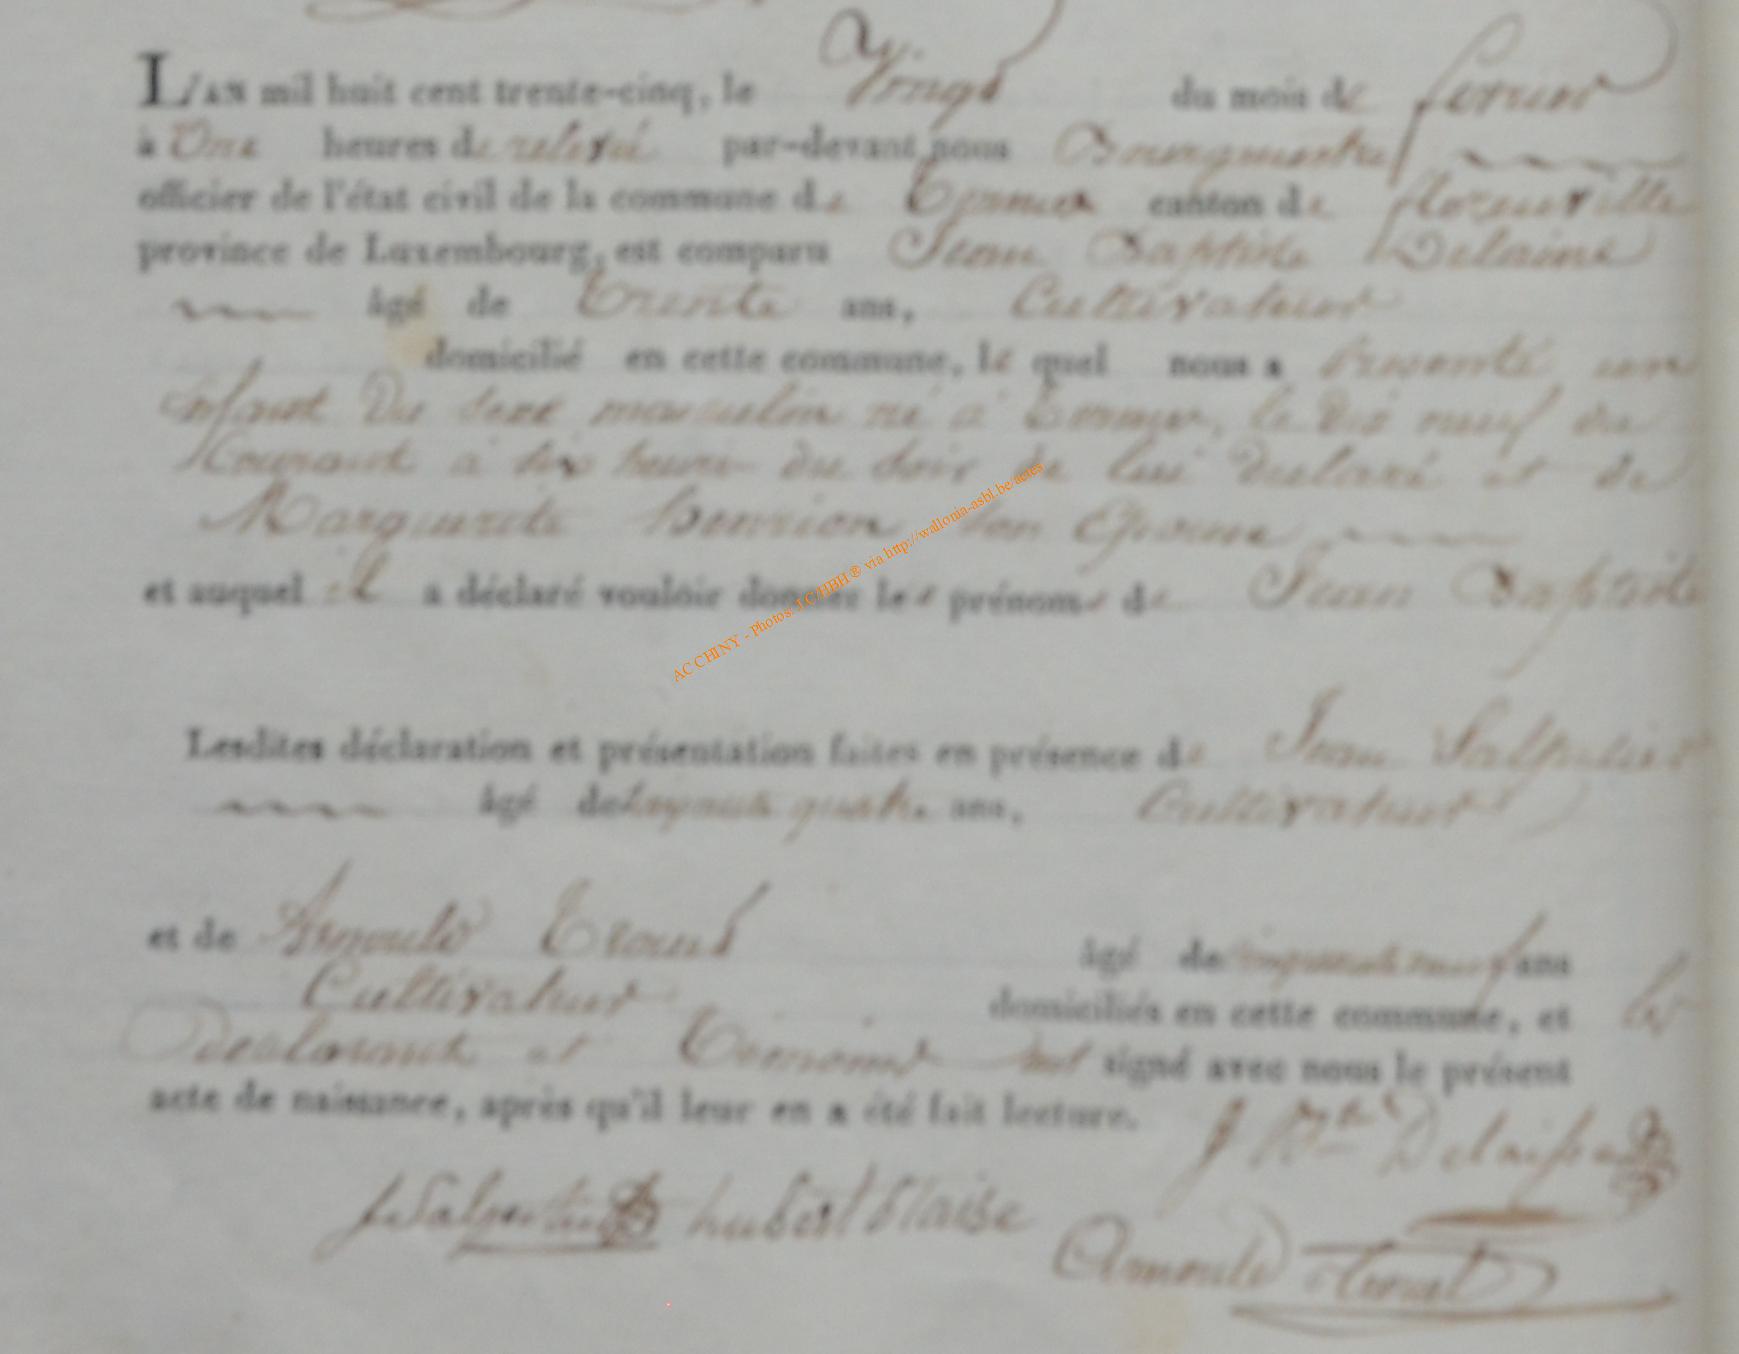 L'AN mil huit cent trente-cinq, le Vingt du mois de fevrier
à Une heures de relevé par-devant nous Bourguemestre
officier de l'état civil de la commune de canton de florenville
province de Luxembourg, est comparu Jean Baptiste Delaisse
âgé de Trente ans, Cultivateur
domicilié en cette commune, le quel nous a presenté un
enfant Du sexe masculin né à le dix neuf du
Courant à six heures du soir de lui declaré et de
Marguerite Henrion son Epouse
et auquel il a déclaré vouloir donner les prénoms de Jean Baptiste
Lesdites déclaration et présentation faites en présence de Jean Salpetier
âgé de soixante quatre ans, Cultivateur
et de Arnould âgé de cinquante neuf ans
Cultivateur domiciliés en cette commune, et les
Declarant et Temoins ont signé avec nous le présent
acte de naissance, après qu'il leur en a été fait lecture.
J Bte Delaisse
J Salpetier hubert blaise
Arnould
AC CHINY - Photos: J.C/HBH ® via http://wallonia-asbl.be/actes